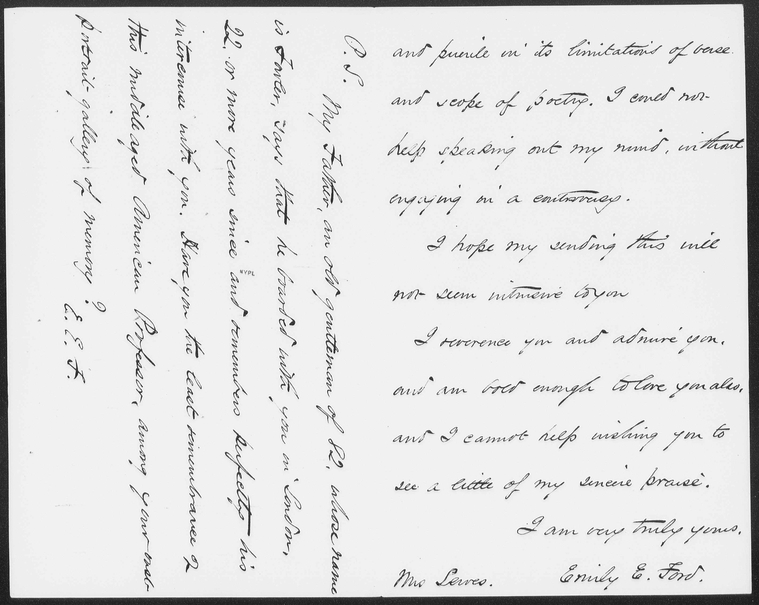 and puerile in its limitations of verse
and scope of poetry. I could not
help speaking out my mind, without
engaging in a controversy.
I hope my sending this will
not seem intrusive to you
I reverence you and admire you,
and am bold enough to love you also,
and I cannot help wishing you to
see a little of my sincere praise.
I am very truly yours,
Emily E. Ford.
Mrs Lewes.
P.S. My Father, an old gentleman of 82, whose name
is Fowler, says that he boarded with you in London,
22, or more years since and remembers perfectly his
intercourse with you. Have you the least remembrance of
this middle aged American Professor, among your vast
portrait-gallery of memory?
E. E. F.
NYPL